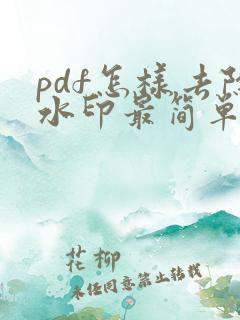 pdf怎样去除
水印最简单
花柳
未经同意禁止转载